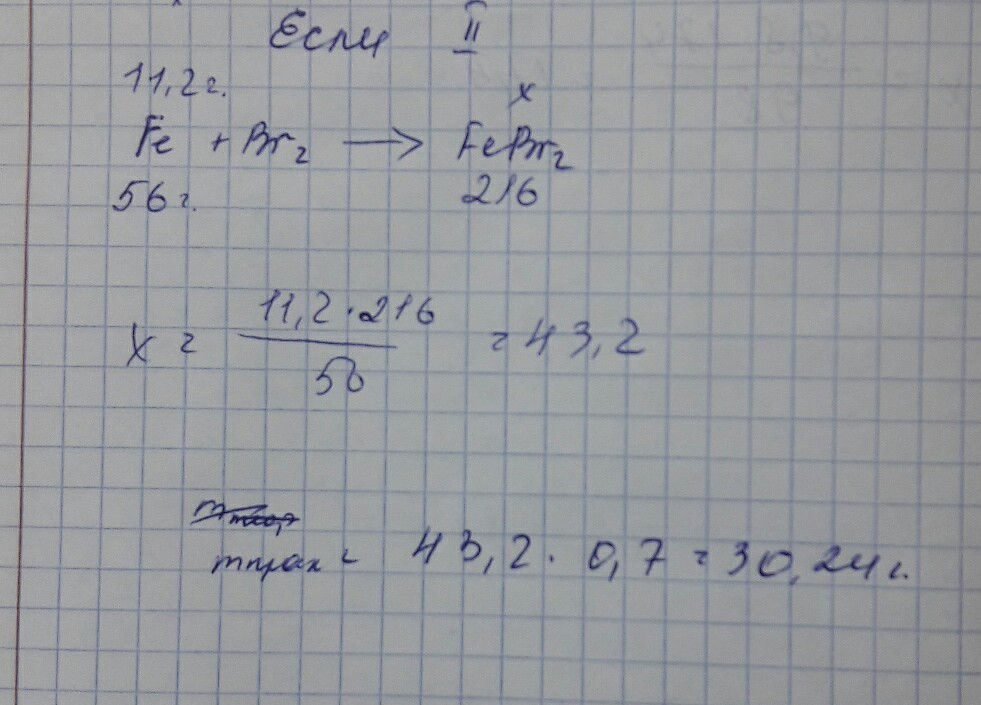 Если II
11,2 г.
x
Fe + Br2 → FeBr2
56 г. 216
x = 11,2 · 216 / 56 = 43,2
mпрак = 43,2 · 0,7 = 30,24 г.